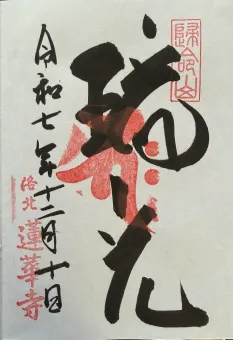 歸命山
瑞花
令和七年十二月十日
洛北
蓮華寺